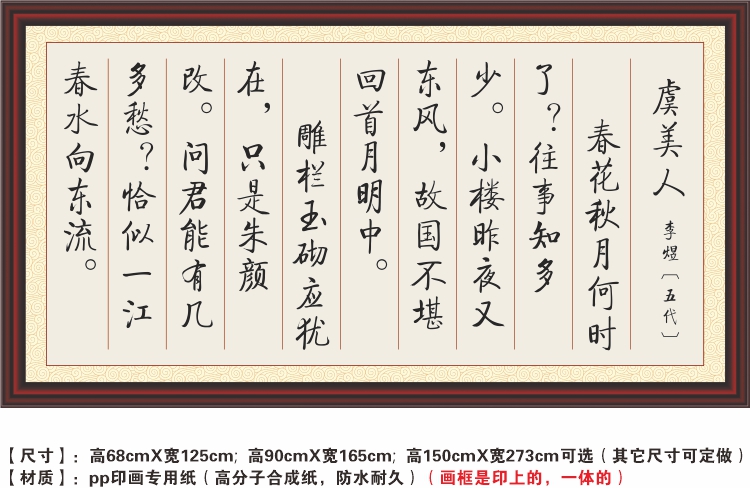 虞美人 李煜〔五代〕
春花秋月何时
了？往事知多
少。小楼昨夜又
东风，故国不堪
回首月明中。
雕栏玉砌应犹
在，只是朱颜
改。问君能有几
多愁？恰似一江
春水向东流。
【尺寸】：高68cmX宽125cm; 高90cmX宽165cm; 高150cmX宽273cm可选（其它尺寸可定做）
【材质】：pp印画专用纸（高分子合成纸，防水耐久）（画框是印上的，一体的）